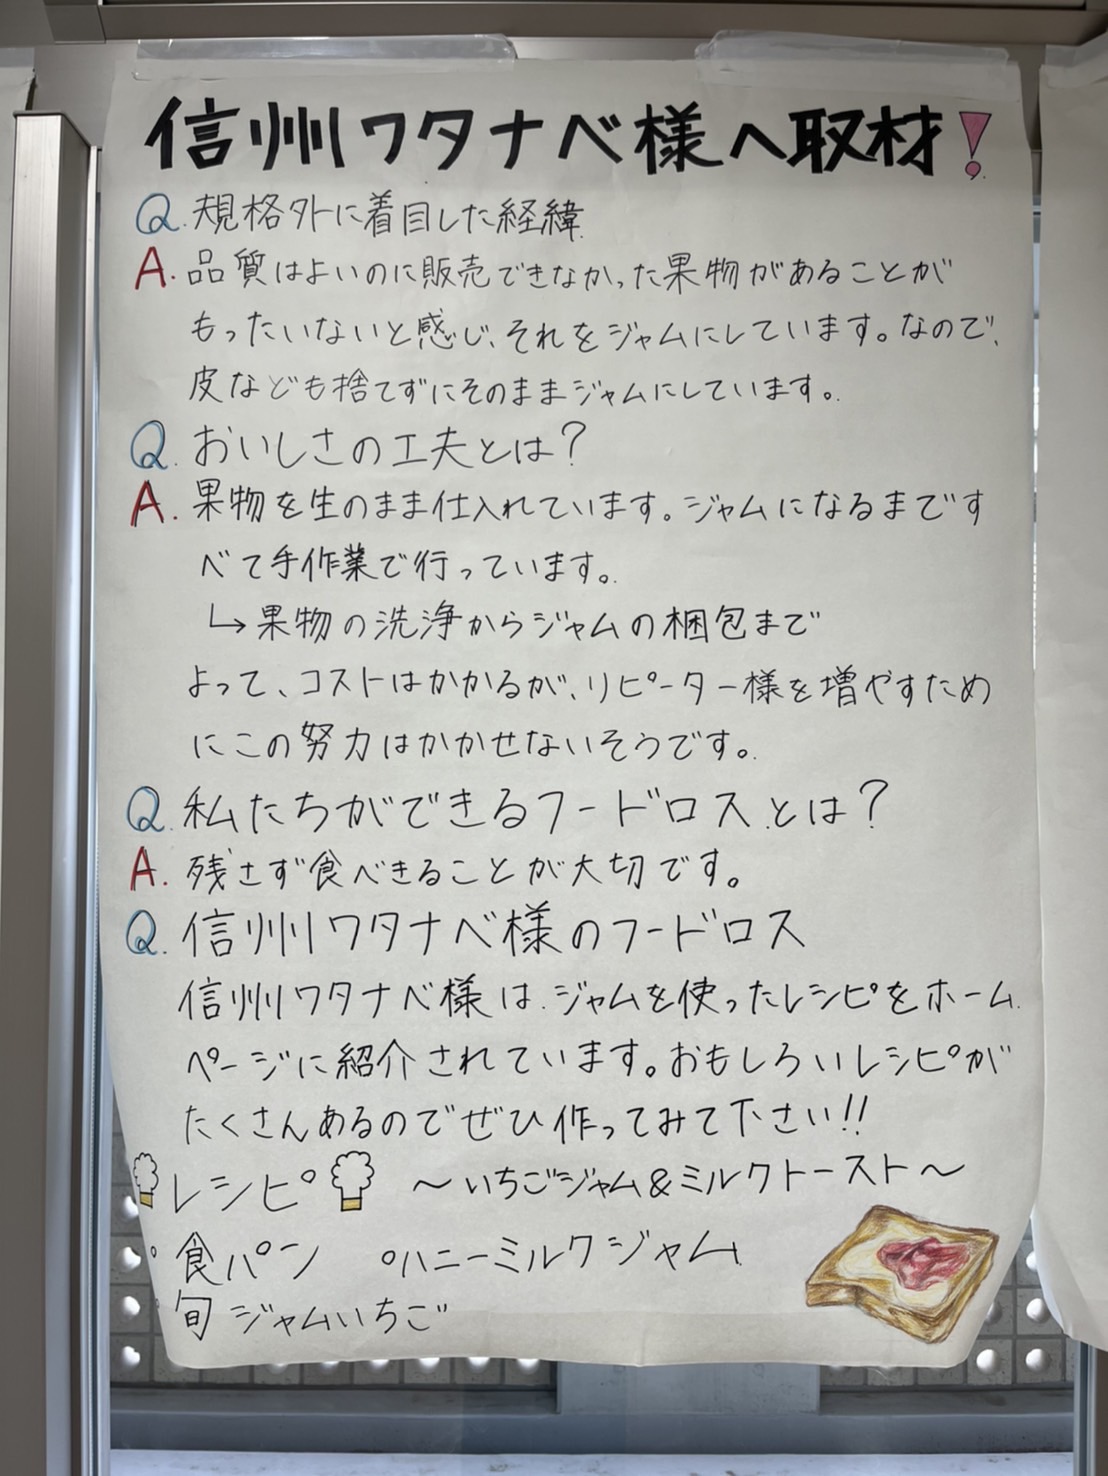 信州ワタナベ様へ取材!
Q. 規格外に着目した経緯
A. 品質はよいのに販売できなかった果物があることが
もったいないと感じ、それをジャムにしています。なので、
皮なども捨てずにそのままジャムにしています。
Q. おいしさの工夫とは?
A. 果物を生のまま仕入れています。ジャムになるまです
べて手作業で行っています。
↳果物の洗浄からジャムの梱包まで
よって、コストはかかるが、リピーター様を増やすため
にこの努力はかかせないそうです。
Q. 私たちができるフードロスとは?
A. 残さず食べきることが大切です。
Q. 信州ワタナベ様のフードロス
信州ワタナベ様は、ジャムを使ったレシピをホーム
ページに紹介されています。おもしろいレシピが
たくさんあるのでぜひ作ってみて下さい!!
レシピ ～いちごジャム&ミルクトースト～
・食パン ・ハニーミルクジャム
・旬ジャムいちご